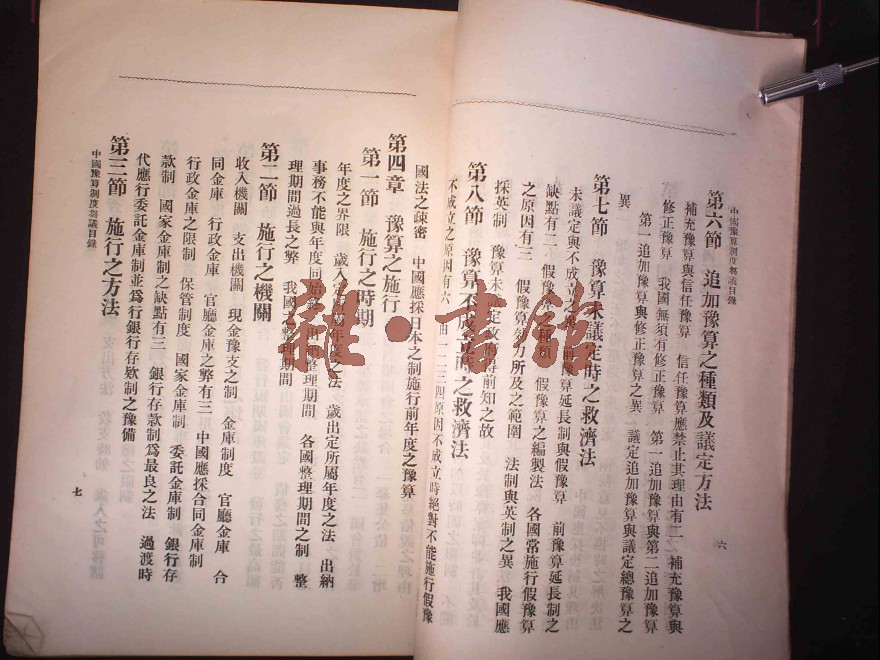 中國豫算制度芻議目錄
第六節　追加豫算之種類及議定方法
補充豫算與信任豫算　信任豫算應禁止其理由有二　補充豫算與
修正豫算　我國無須有修正豫算　第一追加豫算與第二追加豫算
第一追加豫算與修正豫算之異　議定追加豫算與議定總豫算之
異
第七節　豫算未議定時之救濟法
未議定與不成立之異　前豫算延長制與假豫算　前豫算延長制之
缺點有二　假豫算之種類　假豫算之編製法　各國常施行假豫算
之原因有三　假豫算效力所及之範圍　法制與英制之異　我國應
採英制　豫算未議定故得前知之故
第八節　豫算不成立時之救濟法
不成立之原因有六　由一二三四原因不成立時絕對不能施行假豫
六
國法之疎密　中國應採日本之制施行前年度之豫算
第四章　豫算之施行
第一節　施行之時期
年度之界限　歲入定所屬年度之法　歲出定所屬年度之法　出納
事務不能與年度同始終　出納整理期間　各國整理期間之制　整
理期間過長之弊　我國之整理期間
第二節　施行之機關
收入機關　支出機關　現金豫支之制　金庫制度　官廳金庫　合
同金庫　行政金庫　官廳金庫之弊有三　中國應採合同金庫制
行政金庫之限制　保管制度　國家金庫制　委託金庫制　銀行存
款制　國家金庫制之缺點有三　銀行存款制爲最良之法　過渡時
代應行委託金庫制並爲行銀行存欵制之豫備
第三節　施行之方法
中國豫算制度芻議目錄
七
雜·書館